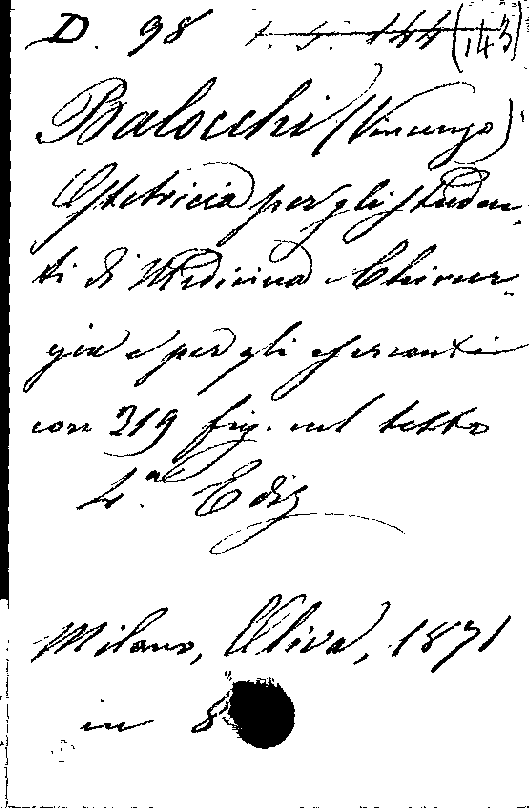 D. 98 1. 5. 144 (143)
Balocchi (Vincenzo)
Ostetricia per gli studen-
ti di Medicina e Chirur-
gia e per gli esercenti
con 219 fig. nel testo
4.a Ediz
Milano, Oliva, 1871
in 8